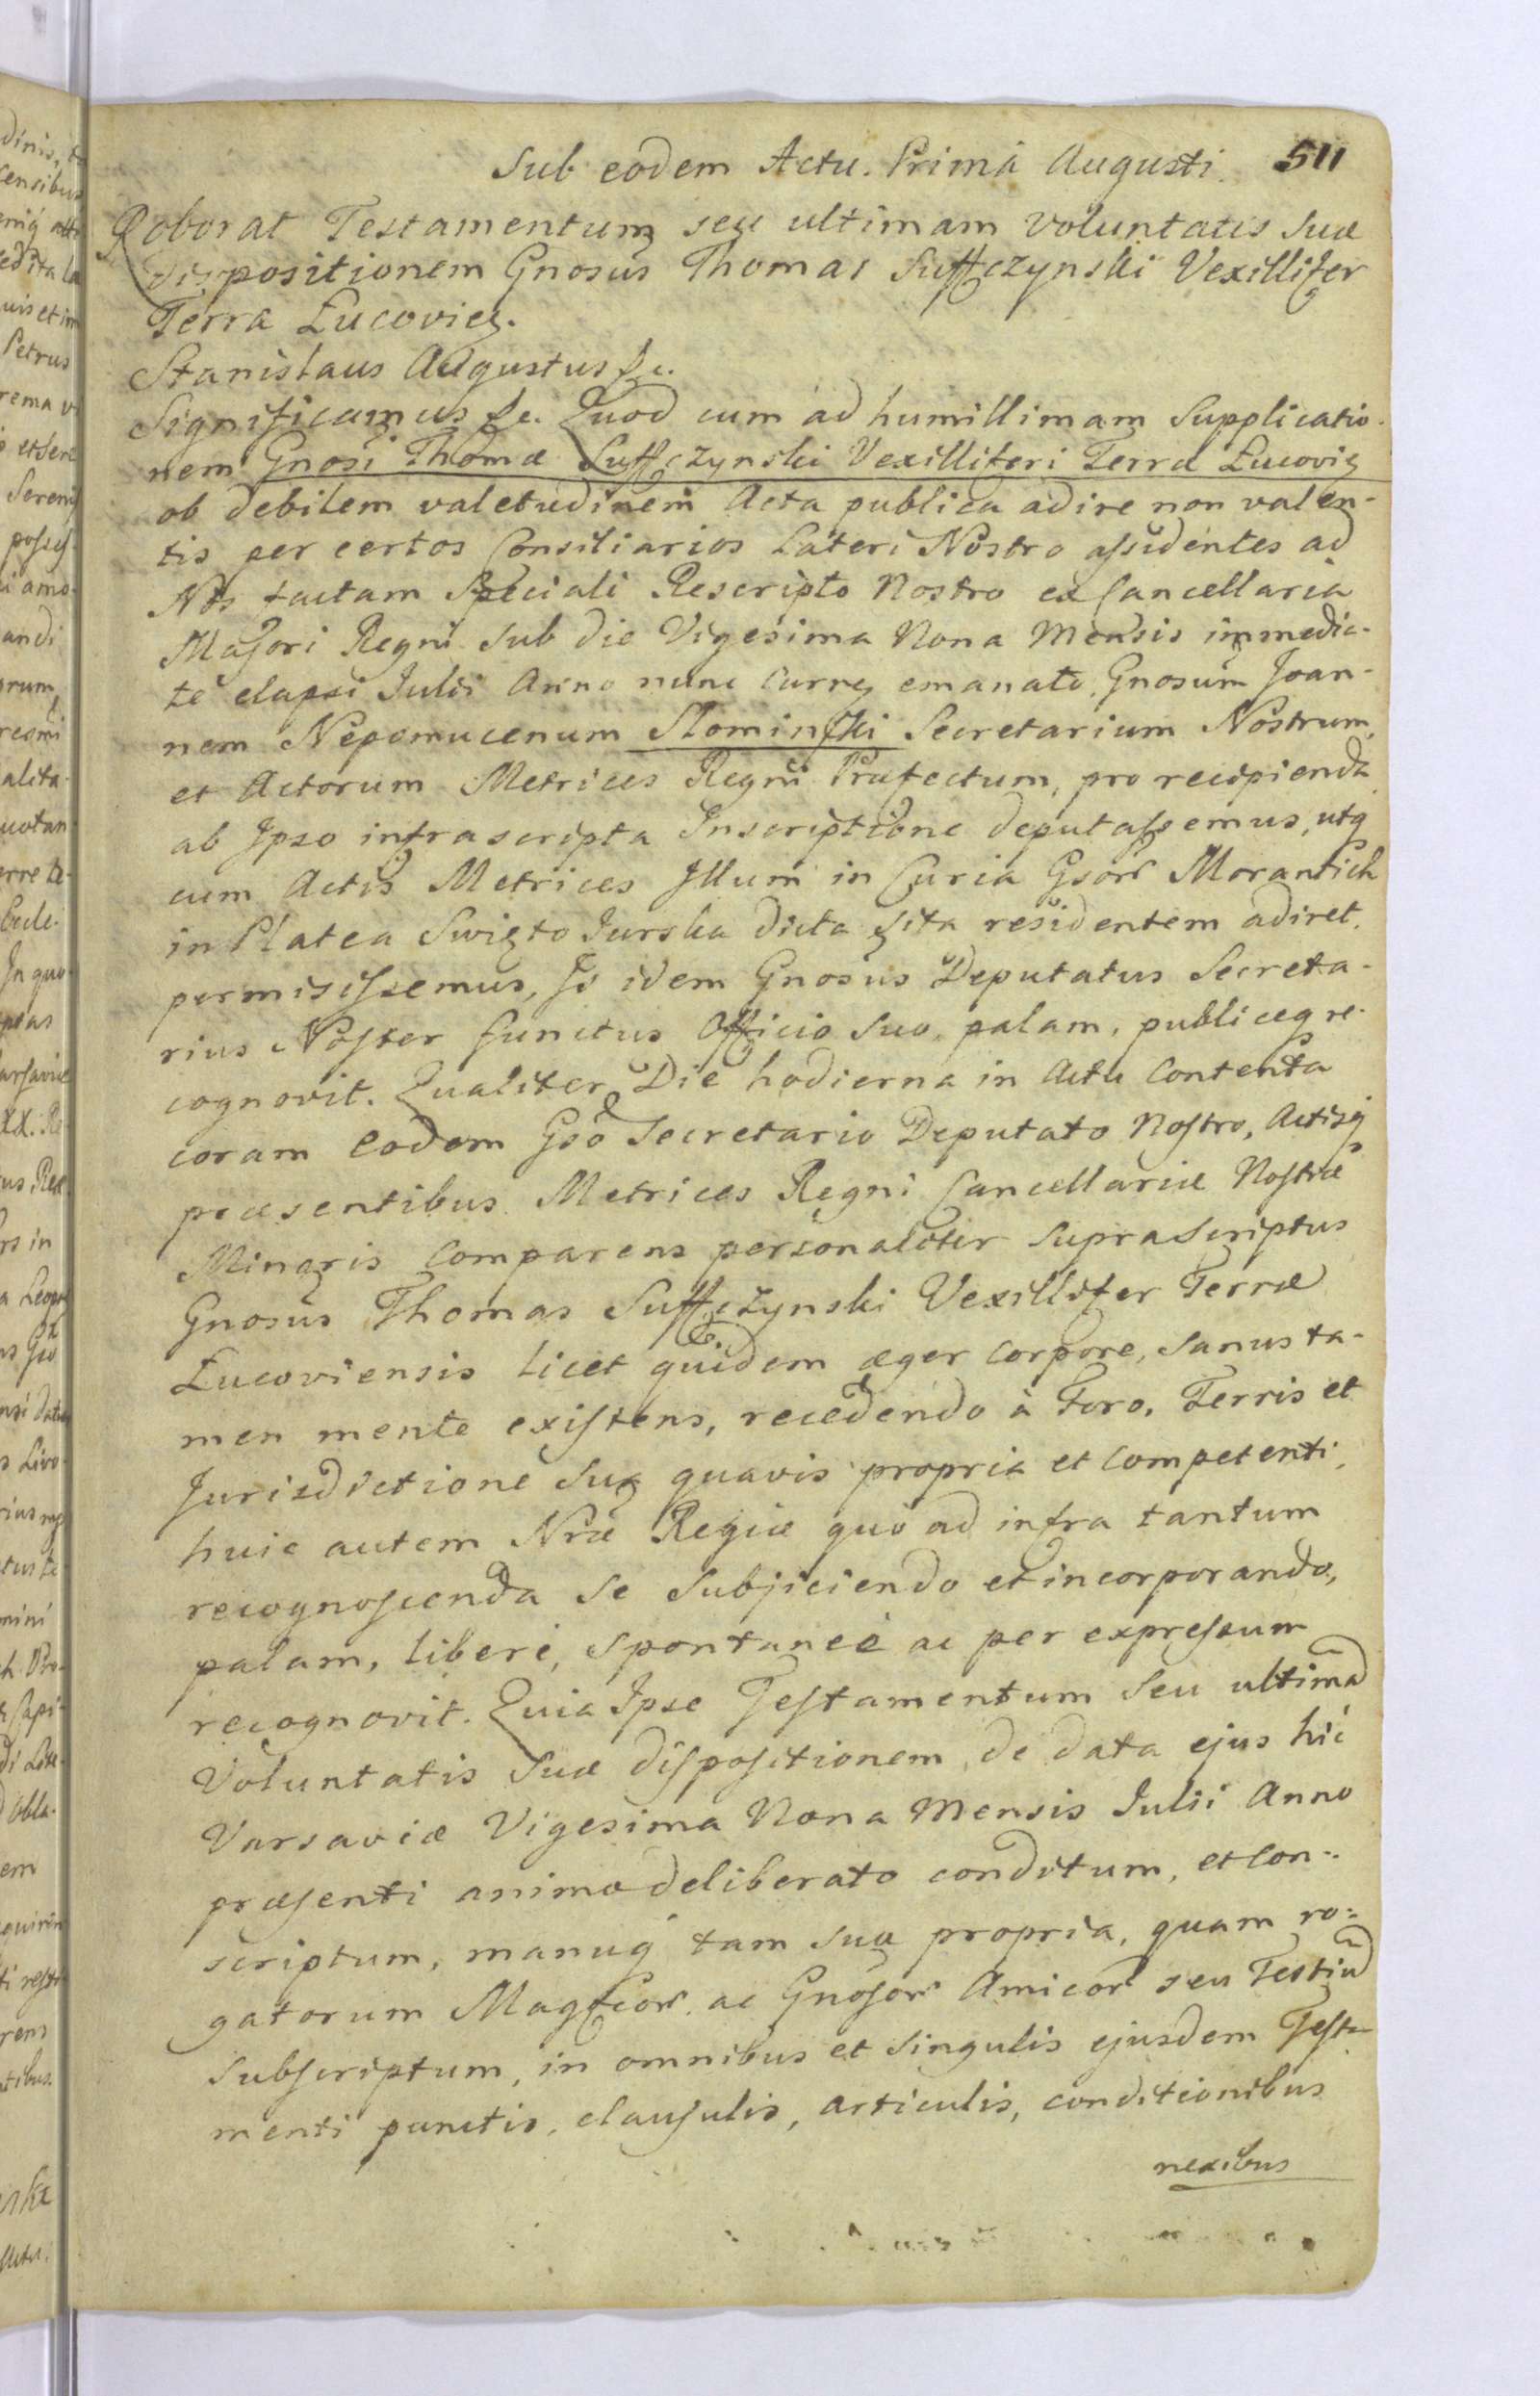 Sub eodem Actu. Primâ Augusti. 511
Roborat Testamentum seu ultimam voluntatis suæ
dispositionem Gnosus Thomas Suffczynski Vexillifer
Terræ Łucovien.
Stanislaus Augustus &c.
Significamus &c. Quod cum ad humillimam Supplicatio-
nem Gnosi Thomæ Suffczynski Vexilliferi Terræ Łucovien
ob debilem valetudinem Acta publica adire non valen-
tis per certos Consiliarios Lateri Nostro assidentes ad
Nos factam Speciali Rescripto Nostro ex Cancellaria
Majori Regni sub die Vigesima Nona Mensis immedia-
te elapsi Julii Anno nunc curren emanato, Gnosum Joan-
nem Nepomucenum Słominski Secretarium Nostrum,
et Actorum Metrices Regni Præfectum, pro recipienda
ab Ipso infrascripta Inscriptione deputassemus, utq
cum Actis Metrices Illum in Curia Gsor Morantich
in Platea Swięto Jurska dicta sita residentem adiret,
permisissemus, Is idem Gnosus Deputatus Secreta-
rius Noster functus Officio suo, palam, publiceq re-
cognovit. Qualiter Die hodierna in Actu Contenta
coram eodem Gso Secretario Deputato Nostro, Actisq
præsentibus Metrices Regni Cancellariæ Nostræ
Minoris Comparens personaliter supraScriptus
Gnosus Thomas Suffczynski Vexillifer Terræ
Łucoviensis licet quidem æger Corpore, sanus ta-
men mente existens, recedendo à Foro, Terris et
Jurisdictione sua quavis propria et competenti,
huic autem Nræ Regiæ quò ad infra tantum
recognoscenda se subjiciendo et incorporando,
palam, liberè, spontaneè ac per expressum
recognovit. Quia Ipse Testamentum seu ultimã
Voluntatis suæ dispositionem, de data ejus hic
Varsaviæ Vigesima Nona Mensis Julii Anno
præsenti animo deliberato conditum, et con-
scriptum, manuq tam sua propria, quam ro-
gatorum Magfcor ac Gnosor Amicor seu Testiũ
subscriptum, in omnibus et singulis ejusdem Testa-
menti punctis, clausulis, articulis, conditionibus
nexibus